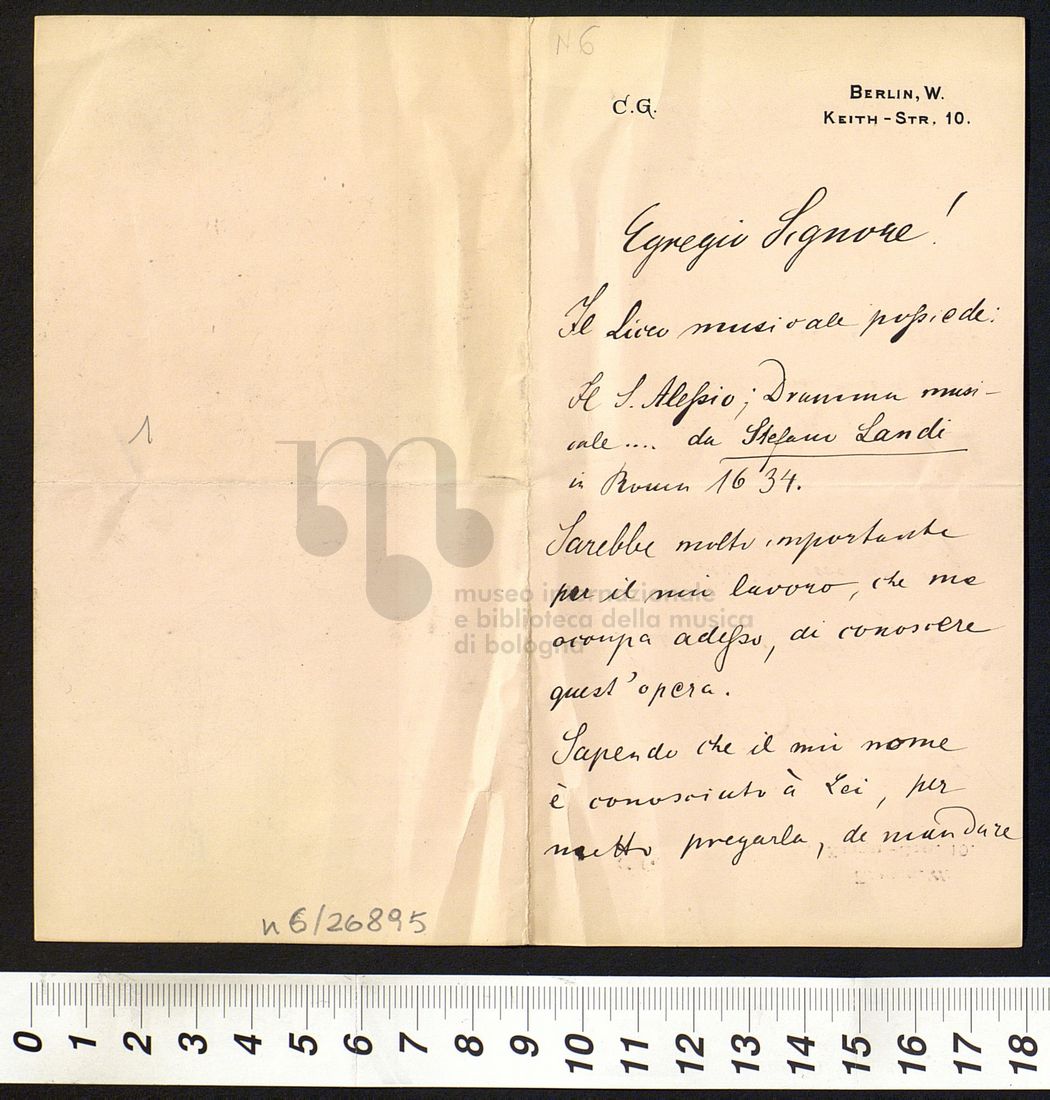 N 6
C.G.
BERLIN, W.
KEITH-STR. 10.
Egregio Signore!
Il Liceo musicale possiede:
Il S. Alessio; Dramma musi-
cale .... da Stefano Landi
in Roma 1634.
Sarebbe molto importante
per il mio lavoro, che me
occupa adesso, di conoscere
quest'opera.
Sapendo che il mio nome
è conosciuto à Lei, per
metto pregarla, de mandare
1
n 6/26895
museo internazionale
e biblioteca della musica
di bologna
0 1 2 3 4 5 6 7 8 9 10 11 12 13 14 15 16 17 18